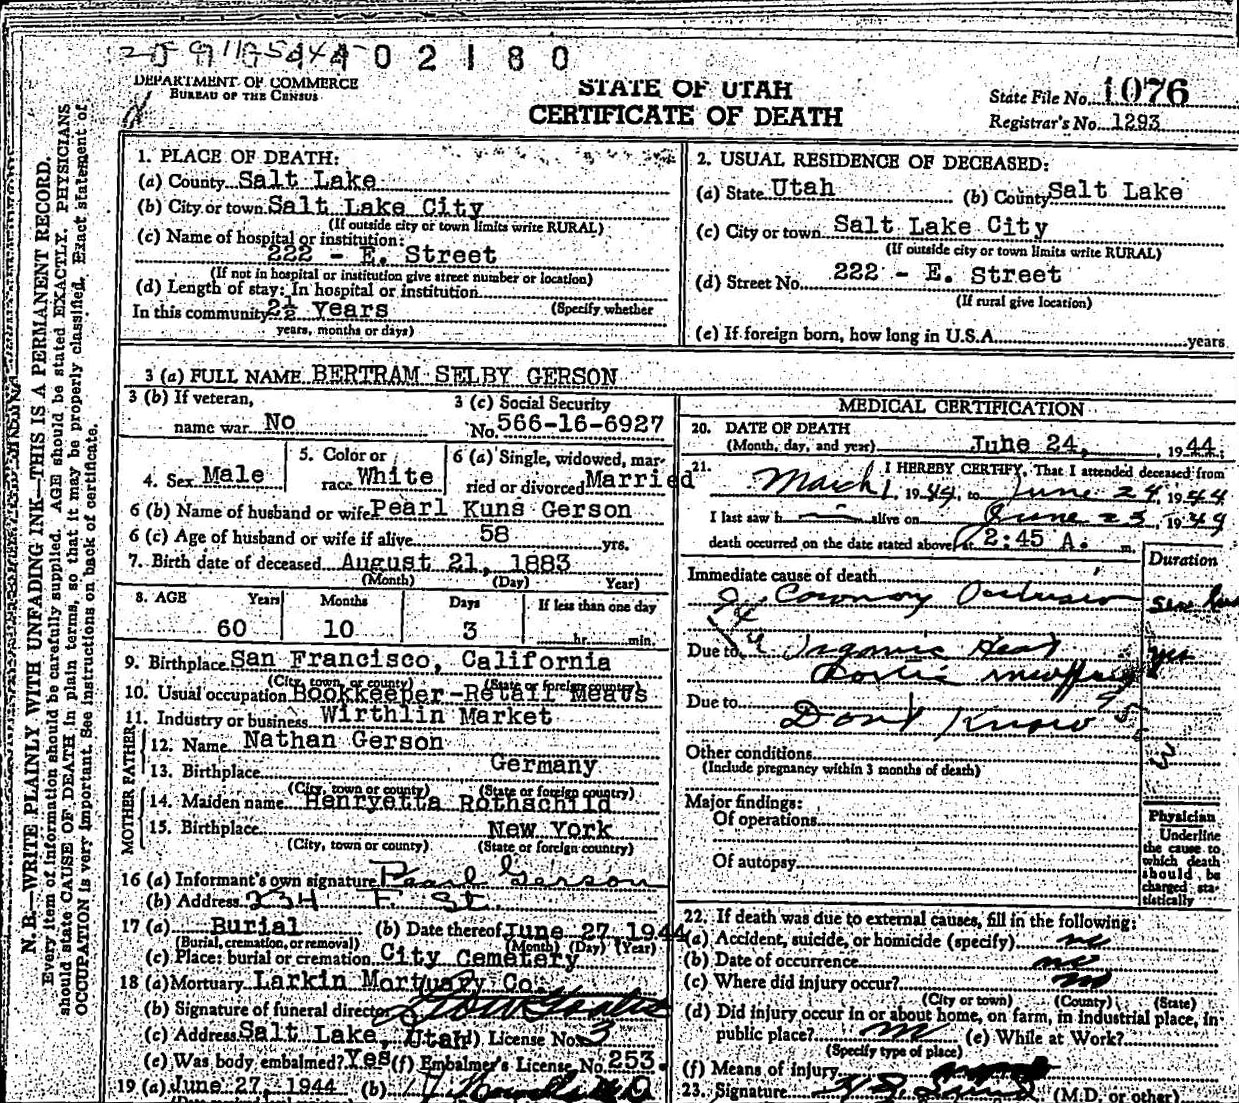 0 2 1 8 0
DEPARTMENT OF COMMERCE
BUREAU OF THE CENSUS
STATE OF UTAH
CERTIFICATE OF DEATH
State File No. 1076
Registrar's No. 1293
N. B.—WRITE PLAINLY WITH UNFADING INK—THIS IS A PERMANENT RECORD.
Every item of information should be carefully supplied. AGE should be stated EXACTLY. PHYSICIANS
should state CAUSE OF DEATH in plain terms, so that it may be properly classified. Exact statement of
OCCUPATION is very important. See instructions on back of certificate.
1. PLACE OF DEATH:
(a) County Salt Lake
(b) City or town Salt Lake City
(If outside city or town limits write RURAL)
(c) Name of hospital or institution:
222 - E. Street
(If not in hospital or institution give street number or location)
(d) Length of stay: In hospital or institution
In this community 2½ Years (Specify whether
years, months or days)
2. USUAL RESIDENCE OF DECEASED:
(a) State Utah (b) County Salt Lake
(c) City or town Salt Lake City
(If outside city or town limits write RURAL)
(d) Street No. 222 - E. Street
(If rural give location)
(e) If foreign born, how long in U.S.A. years
3 (a) FULL NAME BERTRAM SELBY GERSON
3 (b) If veteran,
name war No
3 (c) Social Security
No. 566-16-6927
4. Sex Male
5. Color or
race White
6 (a) Single, widowed, mar-
ried or divorced Married
6 (b) Name of husband or wife Pearl Kuns Gerson
6 (c) Age of husband or wife if alive 58 yrs.
7. Birth date of deceased August 21, 1883
(Month) (Day) Year)
8. AGE Years Months Days If less than one day
60 10 3 hr. min.
9. Birthplace San Francisco, California
(City, town, or county) (State or foreign country)
10. Usual occupation Bookkeeper-Retail Meats
11. Industry or business Wirthlin Market
FATHER
12. Name Nathan Gerson
13. Birthplace Germany
(City, town or county) (State or foreign country)
MOTHER
14. Maiden name Henryetta Rothschild
15. Birthplace New York
(City, town or county) (State or foreign country)
16 (a) Informant's own signature Pearl Gerson
(b) Address 234 E. St.
17 (a) Burial (b) Date thereof June 27, 1944
(Burial, cremation, or removal) (Month) (Day) (Year)
(c) Place: burial or cremation City Cemetery
18 (a) Mortuary Larkin Mortuary Co.
(b) Signature of funeral director
(c) Address Salt Lake, Utah License No. 3
(e) Was body embalmed? Yes (f) Embalmer's License No. 253.
19 (a) June 27, 1944 (b)
MEDICAL CERTIFICATION
20. DATE OF DEATH
(Month, day, and year) June 24, , 1944.
21. I HEREBY CERTIFY, That I attended deceased from
March 1, 1944, to June 24, 1944
I last saw h alive on June 23, 1944
death occurred on the date stated above at 2:45 A. m.
Duration
Immediate cause of death
Coronary Occlusion
Due to Organic Heart yrs
Due to Don't Know
Other conditions
(Include pregnancy within 3 months of death)
Major findings:
Of operations
Of autopsy
Physician
Underline
the cause to
which death
should be
charged sta-
tistically
22. If death was due to external causes, fill in the following:
(a) Accident, suicide, or homicide (specify) no
(b) Date of occurrence no
(c) Where did injury occur? no
(City or town) (County) (State)
(d) Did injury occur in or about home, on farm, in industrial place, in
public place? no (e) While at Work?
(Specify type of place)
(f) Means of injury
23. Signature (M.D. or other)